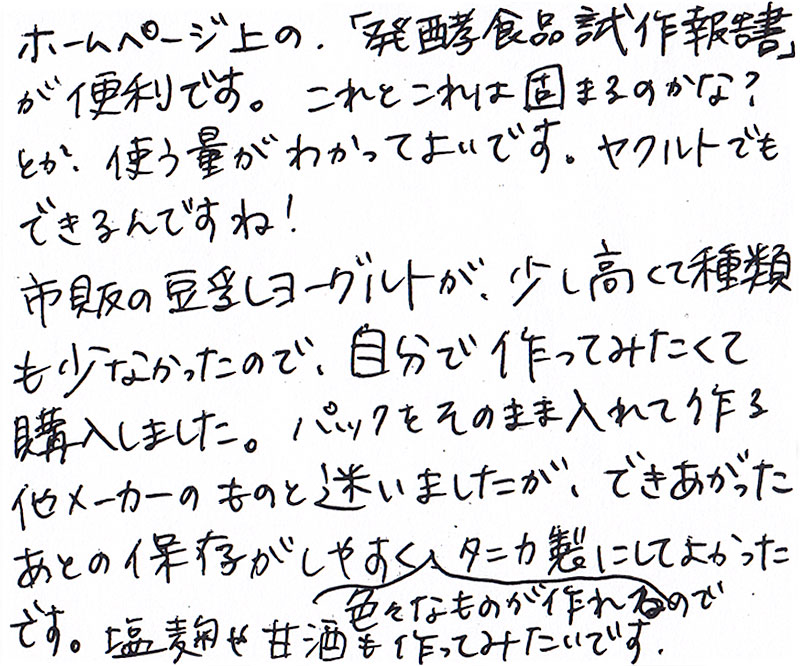 ホームページ上の、「発酵食品試作報告書」
が便利です。これとこれは固まるのかな?
とか、使う量がわかってよいです。ヤクルトでも
できるんですね!
市販の豆乳ヨーグルトが、少し高くて種類
も少なかったので、自分で作ってみたくて
購入しました。パックをそのまま入れて作る
他メーカーのものと迷いましたが、できあがった
あとの保存がしやすく、タニカ製にしてよかった
色々なものが作れるので
です。塩麹や甘酒も作ってみたいです.